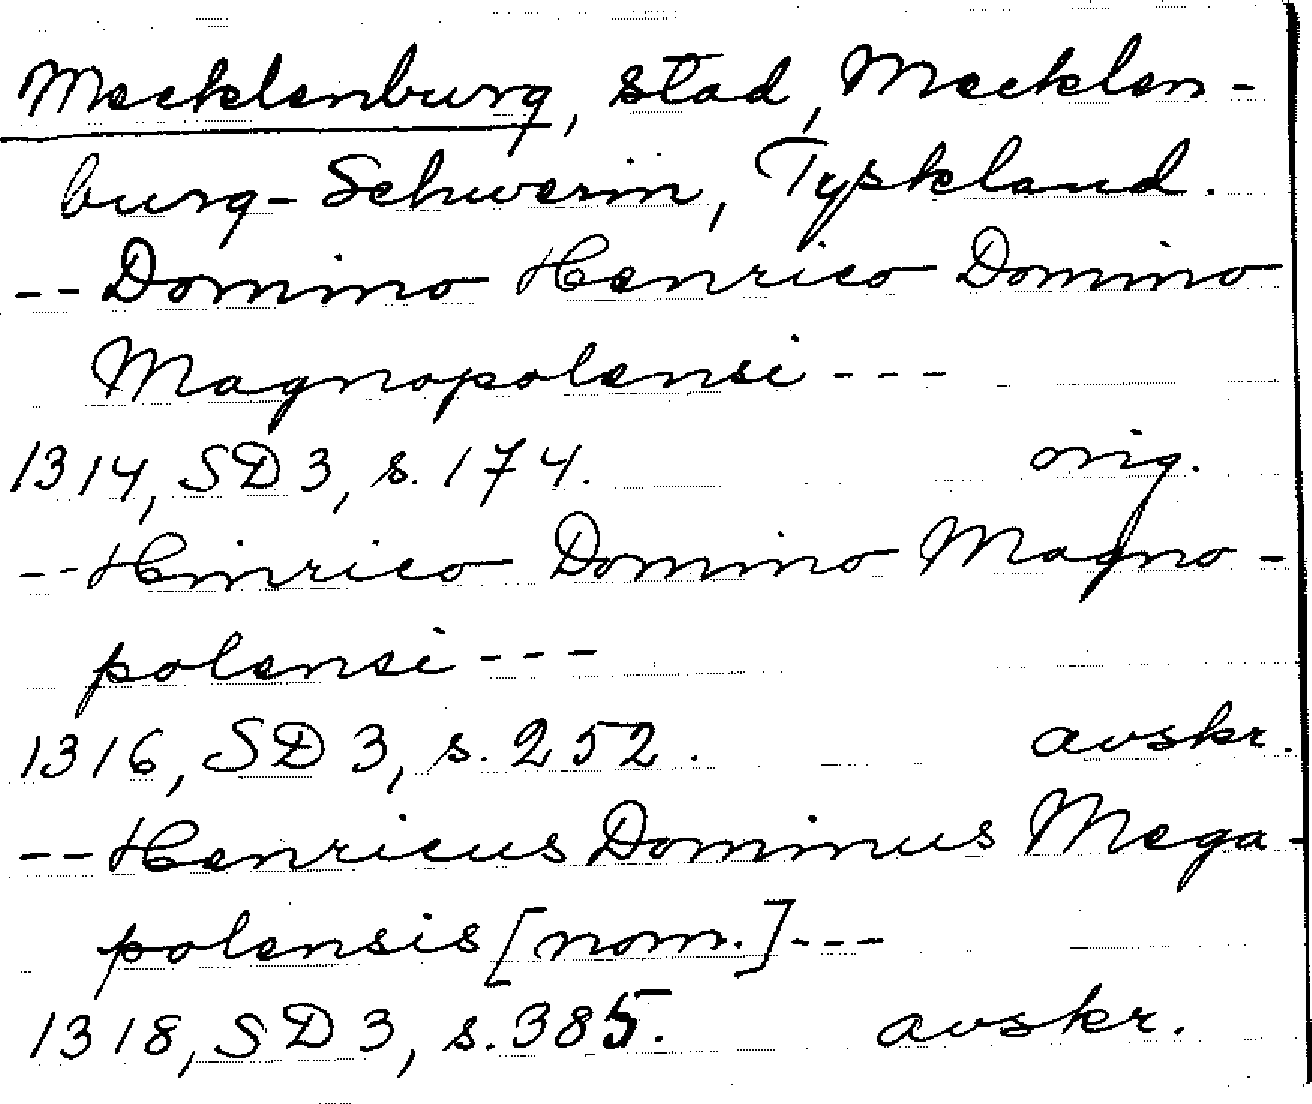 Mecklenburg, stad, Mecklen-
burg-Schwerin, Tyskland.
-- Domino Henrico Domino
Magnopolensi ---
1314, SD 3, s. 174. orig.
-- Hinrico Domino Magno-
polensi ---
1316, SD 3, s. 252. avskr.
-- Henricus Dominus Mega-
polensis [nom.] ---
1318, SD 3, s. 385. avskr.